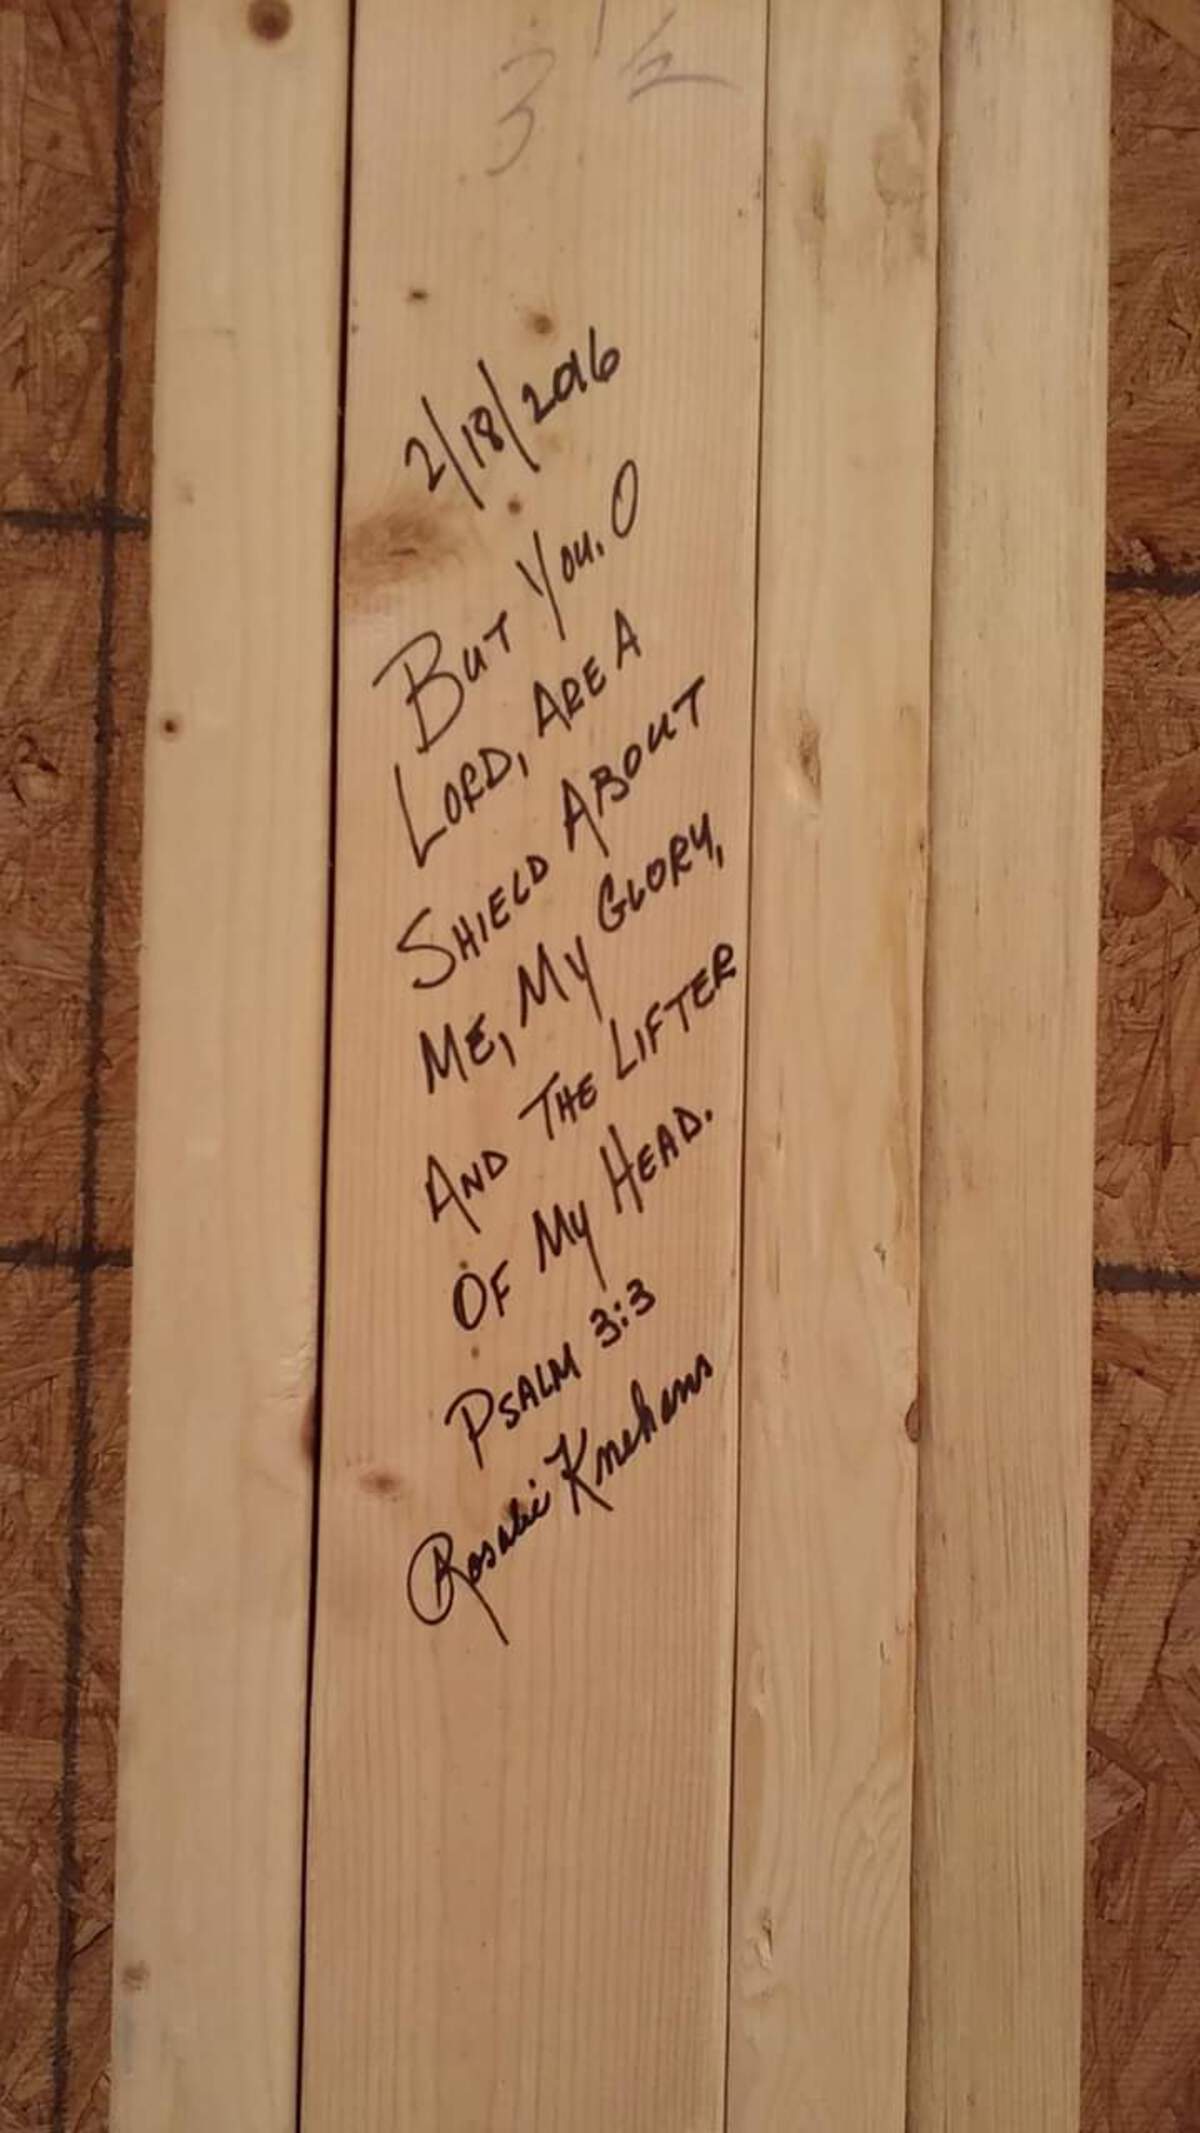 3 1/2
2/18/2016
But You, O
Lord, Are A
Shield About
Me, My Glory,
And The Lifter
Of My Head.
Psalm 3:3
Rosalie Knehans